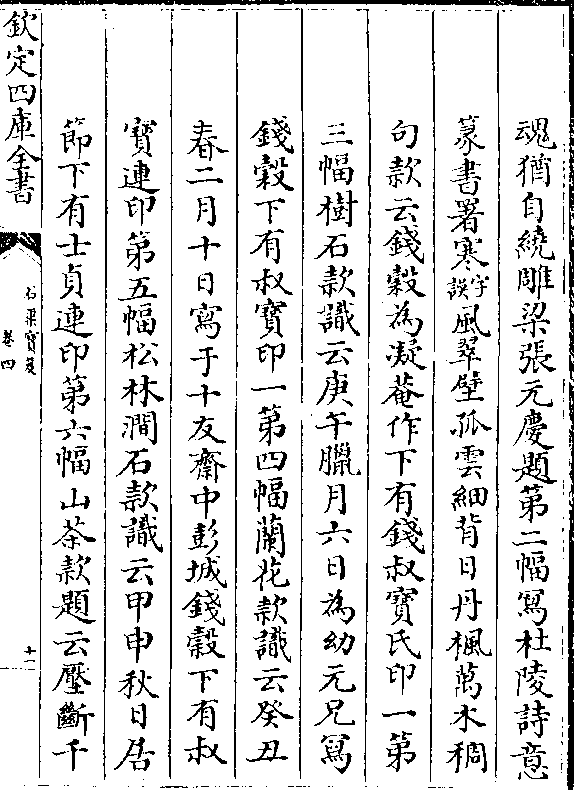 魂猶自繞雕梁張元慶題第二幅寫杜陵詩意
篆書署寒字誤風翠壁孤雲細背日丹楓萬木稠
句款云錢榖為凝菴作下有錢叔寶氏印一第
三幅樹石款識云庚午臘月六日為幼元兄寫
錢榖下有叔寶印一第四幅蘭花款識云癸丑
春二月十日寫于十友齋中彭城錢榖下有叔
寶連印第五幅松林澗石款識云甲申秋日居
節下有士貞連印第六幅山茶款題云壓斷千
欽定四庫全書
石渠寶笈
卷四
十一